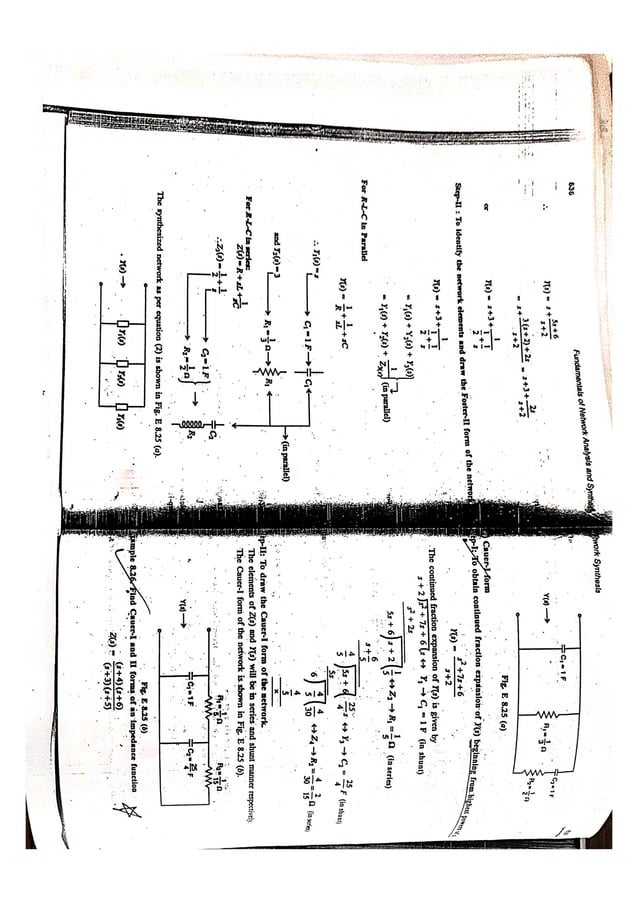 636
Fundamentals of Network Analysis and Synthesis
∴ Y(s) = s + (5s+6)/(s+2)
= s + (3(s+2)+2s)/(s+2) = s+3+ 2s/(s+2)
or Y(s) = s+3+ 1/(1/2 + 1/s)
Step-II : To identify the network elements and draw the Foster-II form of the network
Y(s) = s+3+ 1/(1/2 + 1/s)
= Y₁(s) + Y₂(s) + Y₃(s)
= Y₁(s) + Y₂(s) + 1/Z₃(s) (in parallel)
For R-L-C in Parallel
Y(s) = 1/R + 1/sL + sC
∴ Y₁(s)=s
C₁ = 1 F
C₁
and Y₂(s)=3
R₁ = 1/3 Ω
R₁
(in parallel)
For R-L-C in series:
Z(s) = R + sL + 1/sC
∴ Z₃(s) = 1/2 + 1/s
C₂ = 1 F
R₂ = 1/2 Ω
C₂
R₂
The synthesized network as per equation (2) is shown in Fig. E 8.25 (a).
Y(s)
Y₁(s)
Y₂(s)
Y₃(s)
Network Synthesis
Y(s)
C₁ = 1 F
R₁ = 1/3 Ω
C₂ = 1 F
R₂ = 1/2 Ω
Fig. E 8.25 (a)
Cauer-I form
Step-I: To obtain continued fraction expansion of Y(s) beginning from highest power,
Y(s) = (s²+7s+6)/(s+2)
The continued fraction expansion of Y(s) is given by
s + 2 ) s² + 7s + 6 ( s ↔ Y₁ → C₁ = 1 F (in shunt)
s² + 2s
5s + 6 ) s + 2 ( 1/5 ↔ Z₂ → R₁ = 1/5 Ω (in series)
s + 6/5
4/5 ) 5s + 6 ( 25/4 s ↔ Y₃ → C₂ = 25/4 F (in shunt)
5s
6 ) 4/5 ( 4/30 ↔ Z₄ → R₂ = 4/30 = 2/15 Ω (in series)
4/5
x
Step-II: To draw the Cauer-I form of the network.
The elements of Z(s) and Y(s) will be in series and shunt manner respectively.
The Cauer-I form of the network is shown in Fig. E 8.25 (b).
Y(s)
R₁ = 1/5 Ω
R₂ = 2/15 Ω
C₁ = 1 F
C₂ = 25/4 F
Fig. E 8.25 (b)
Example 8.26. Find Cauer-I and II forms of an impedance function
Z(s) = (s+4)(s+6)/(s+3)(s+5)